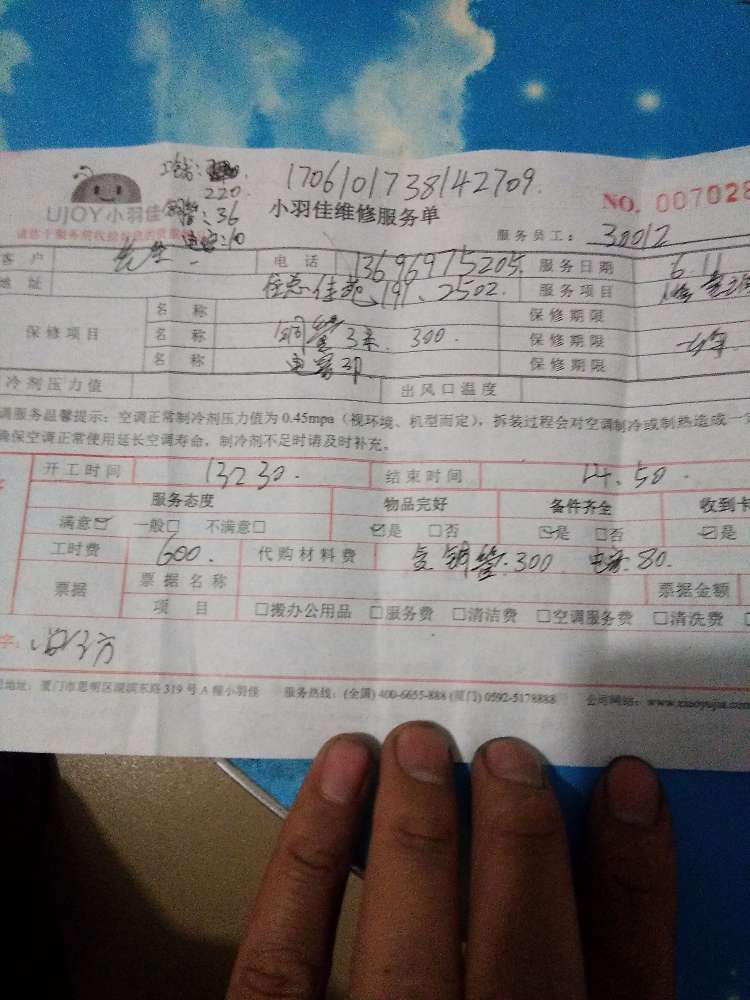 220
36
10
1706101738142709.
UJOY小羽佳
小羽佳维修服务单
NO. 007028
服务员工： 30012
客 户 先生 电 话 13696975205 服务日期 6.11
地 址 佳苑191、2502. 服务项目
保修项目
名 称 保修期限
名 称 铜管3米 300. 保修期限 一年
名 称 保修期限
冷剂压力值 出风口温度
调服务温馨提示：空调正常制冷剂压力值为 0.45mpa（视环境、机型而定），拆装过程会对空调制冷或制热造成一定
确保空调正常使用延长空调寿命，制冷剂不足时请及时补充。
开工时间 13:30. 结束时间 14.50
服务态度 物品完好 备件齐全 收到卡
满意☑ 一般□ 不满意□ ☑是 □否 ☑是 □否 ☑是
工时费 600. 代购材料费 铜管.300 80.
票据 票据名称 票据金额
项 目 □搬办公用品 □服务费 □清洁费 □空调服务费 □清洗费
字：
地址：厦门市思明区湖滨东路 319 号 A 幢小羽佳 服务热线：(全国) 400-6655-888 (厦门) 0592-5178888 公司网站：www.xiaoyujia.com